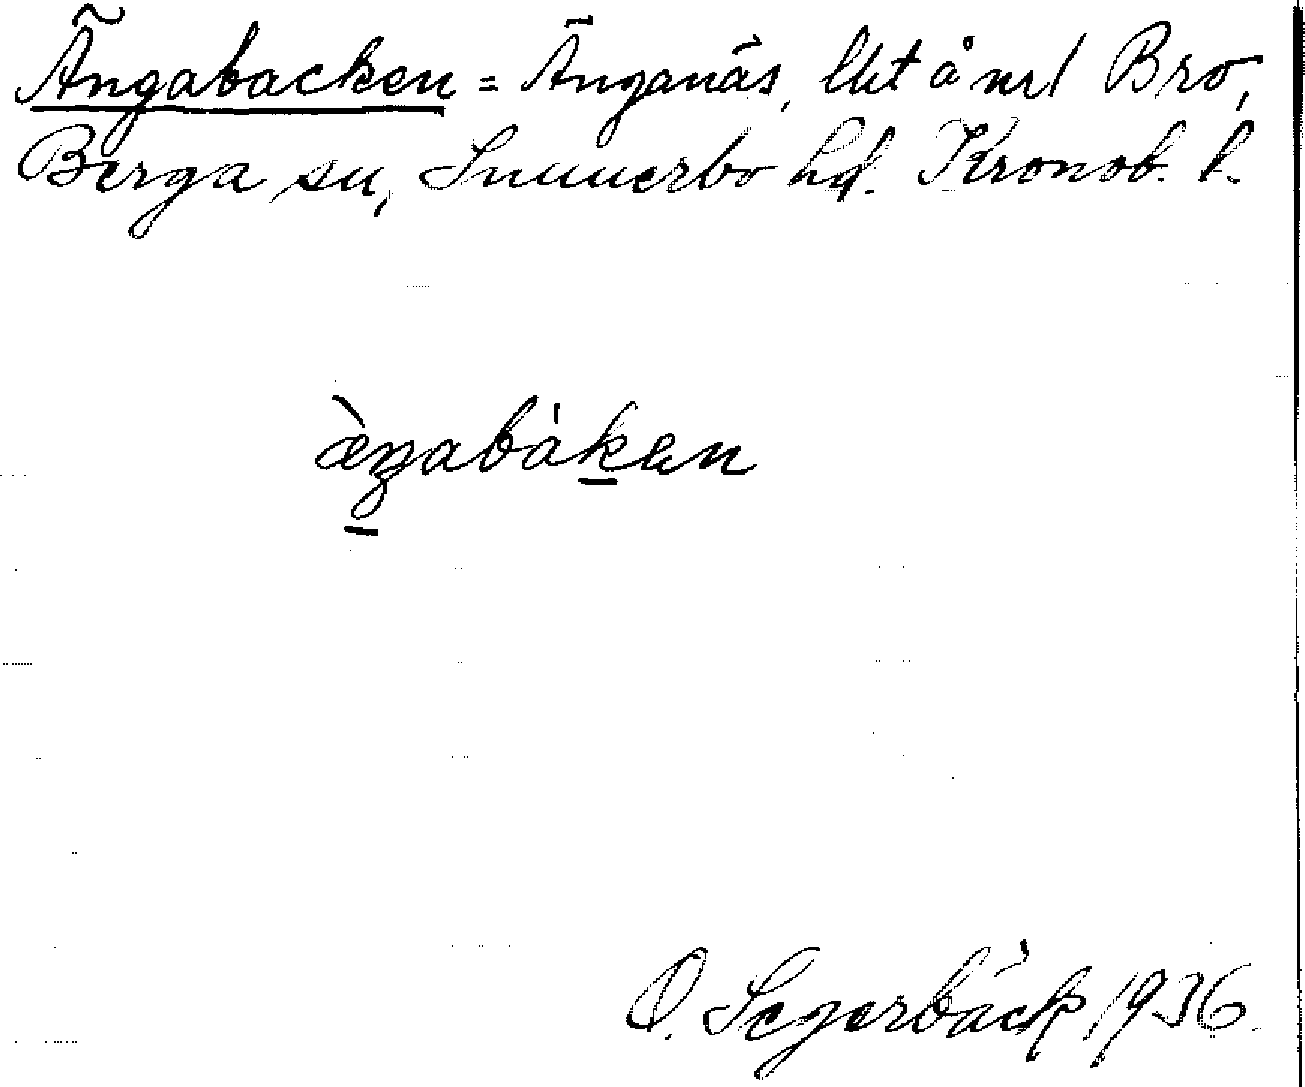 Ängabacken = Änganäs, lht å nr 1 Bro,
Berga sn, Sunnerbo hd. Kronob. l.
æ̀ŋabàken
O. Segerbäck 1936.